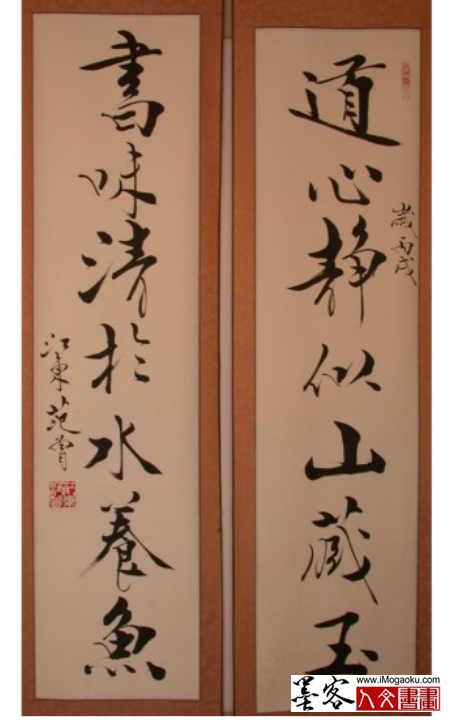 道心静似山藏玉
歲丙戌
書味清於水養魚
江東范膏
www.iMogaoku.com
墨客 人文書畫